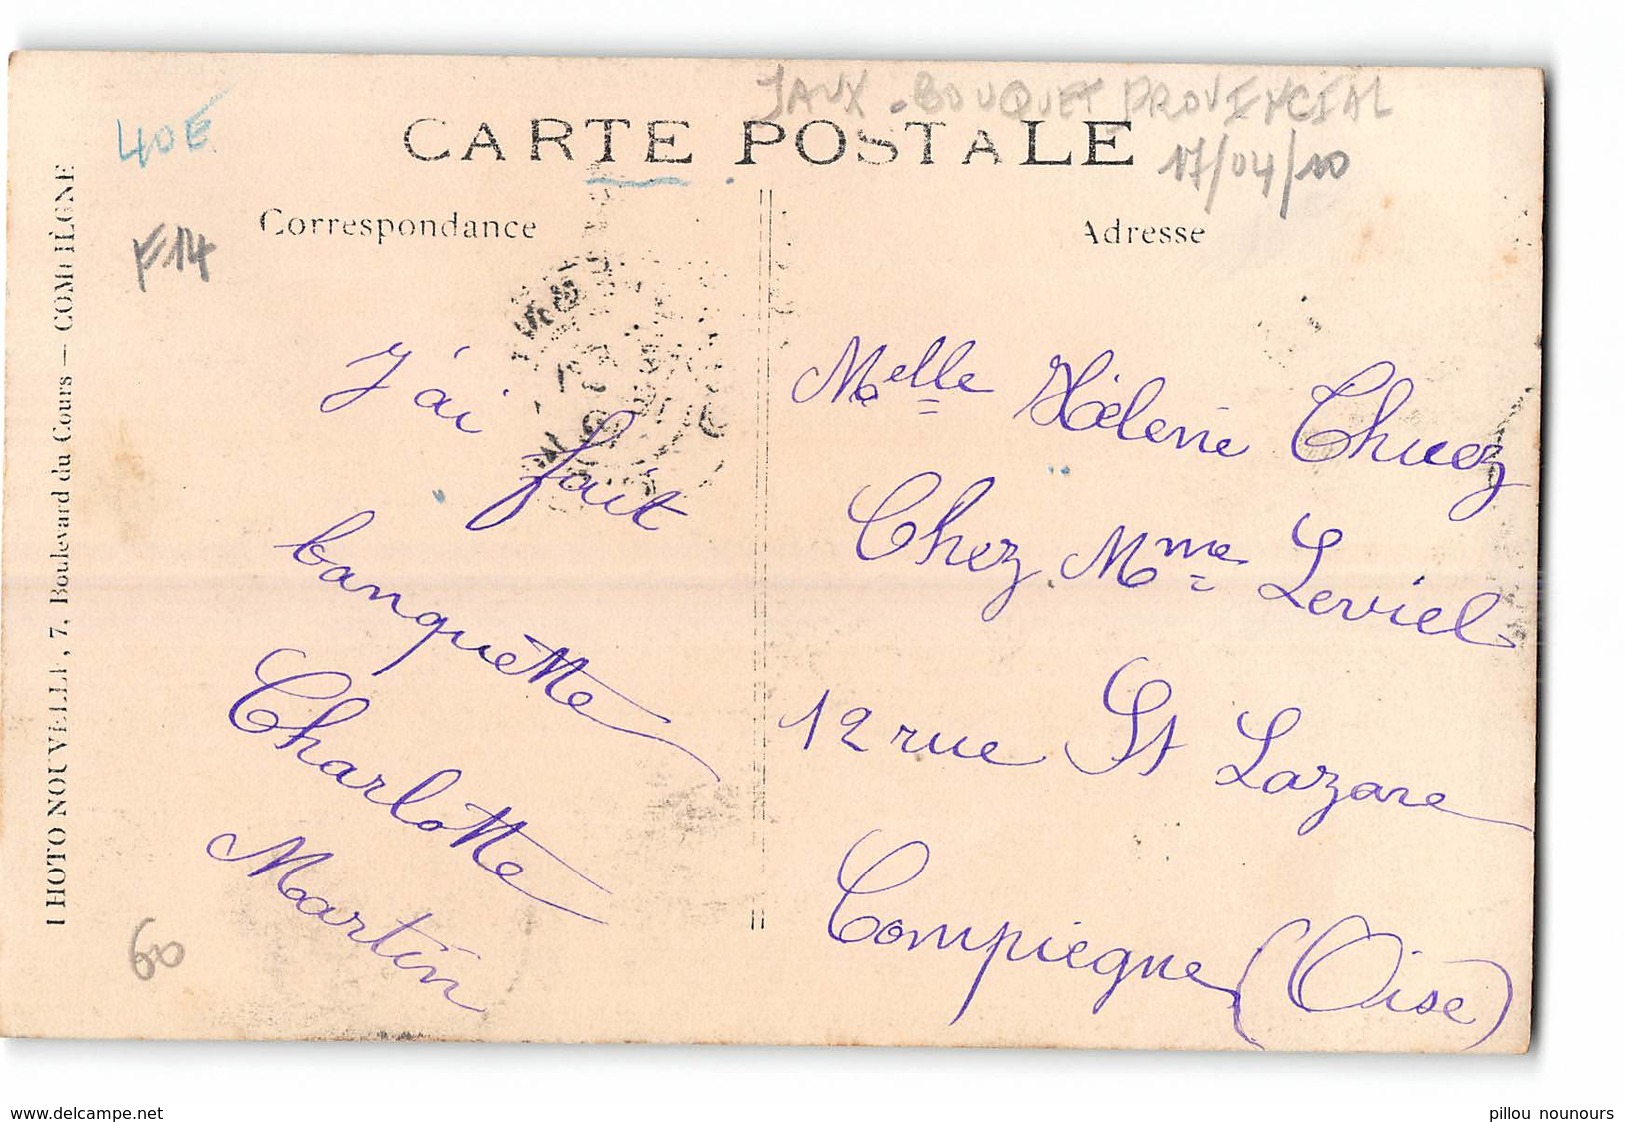 JAUX - BOUQUET PROVINCIAL
17/04/10
40E
F14
CARTE POSTALE
Correspondance
Adresse
PHOTO NOUVELLE, 7, Boulevard du Cours — COMPIÈGNE
J'ai fait
banquette
Charlotte
Martin
Melle Hélène Thuez
Chez Mme Leviel
12 rue St Lazare
Compiegne (Oise)
60
www.delcampe.net
pillou nounours